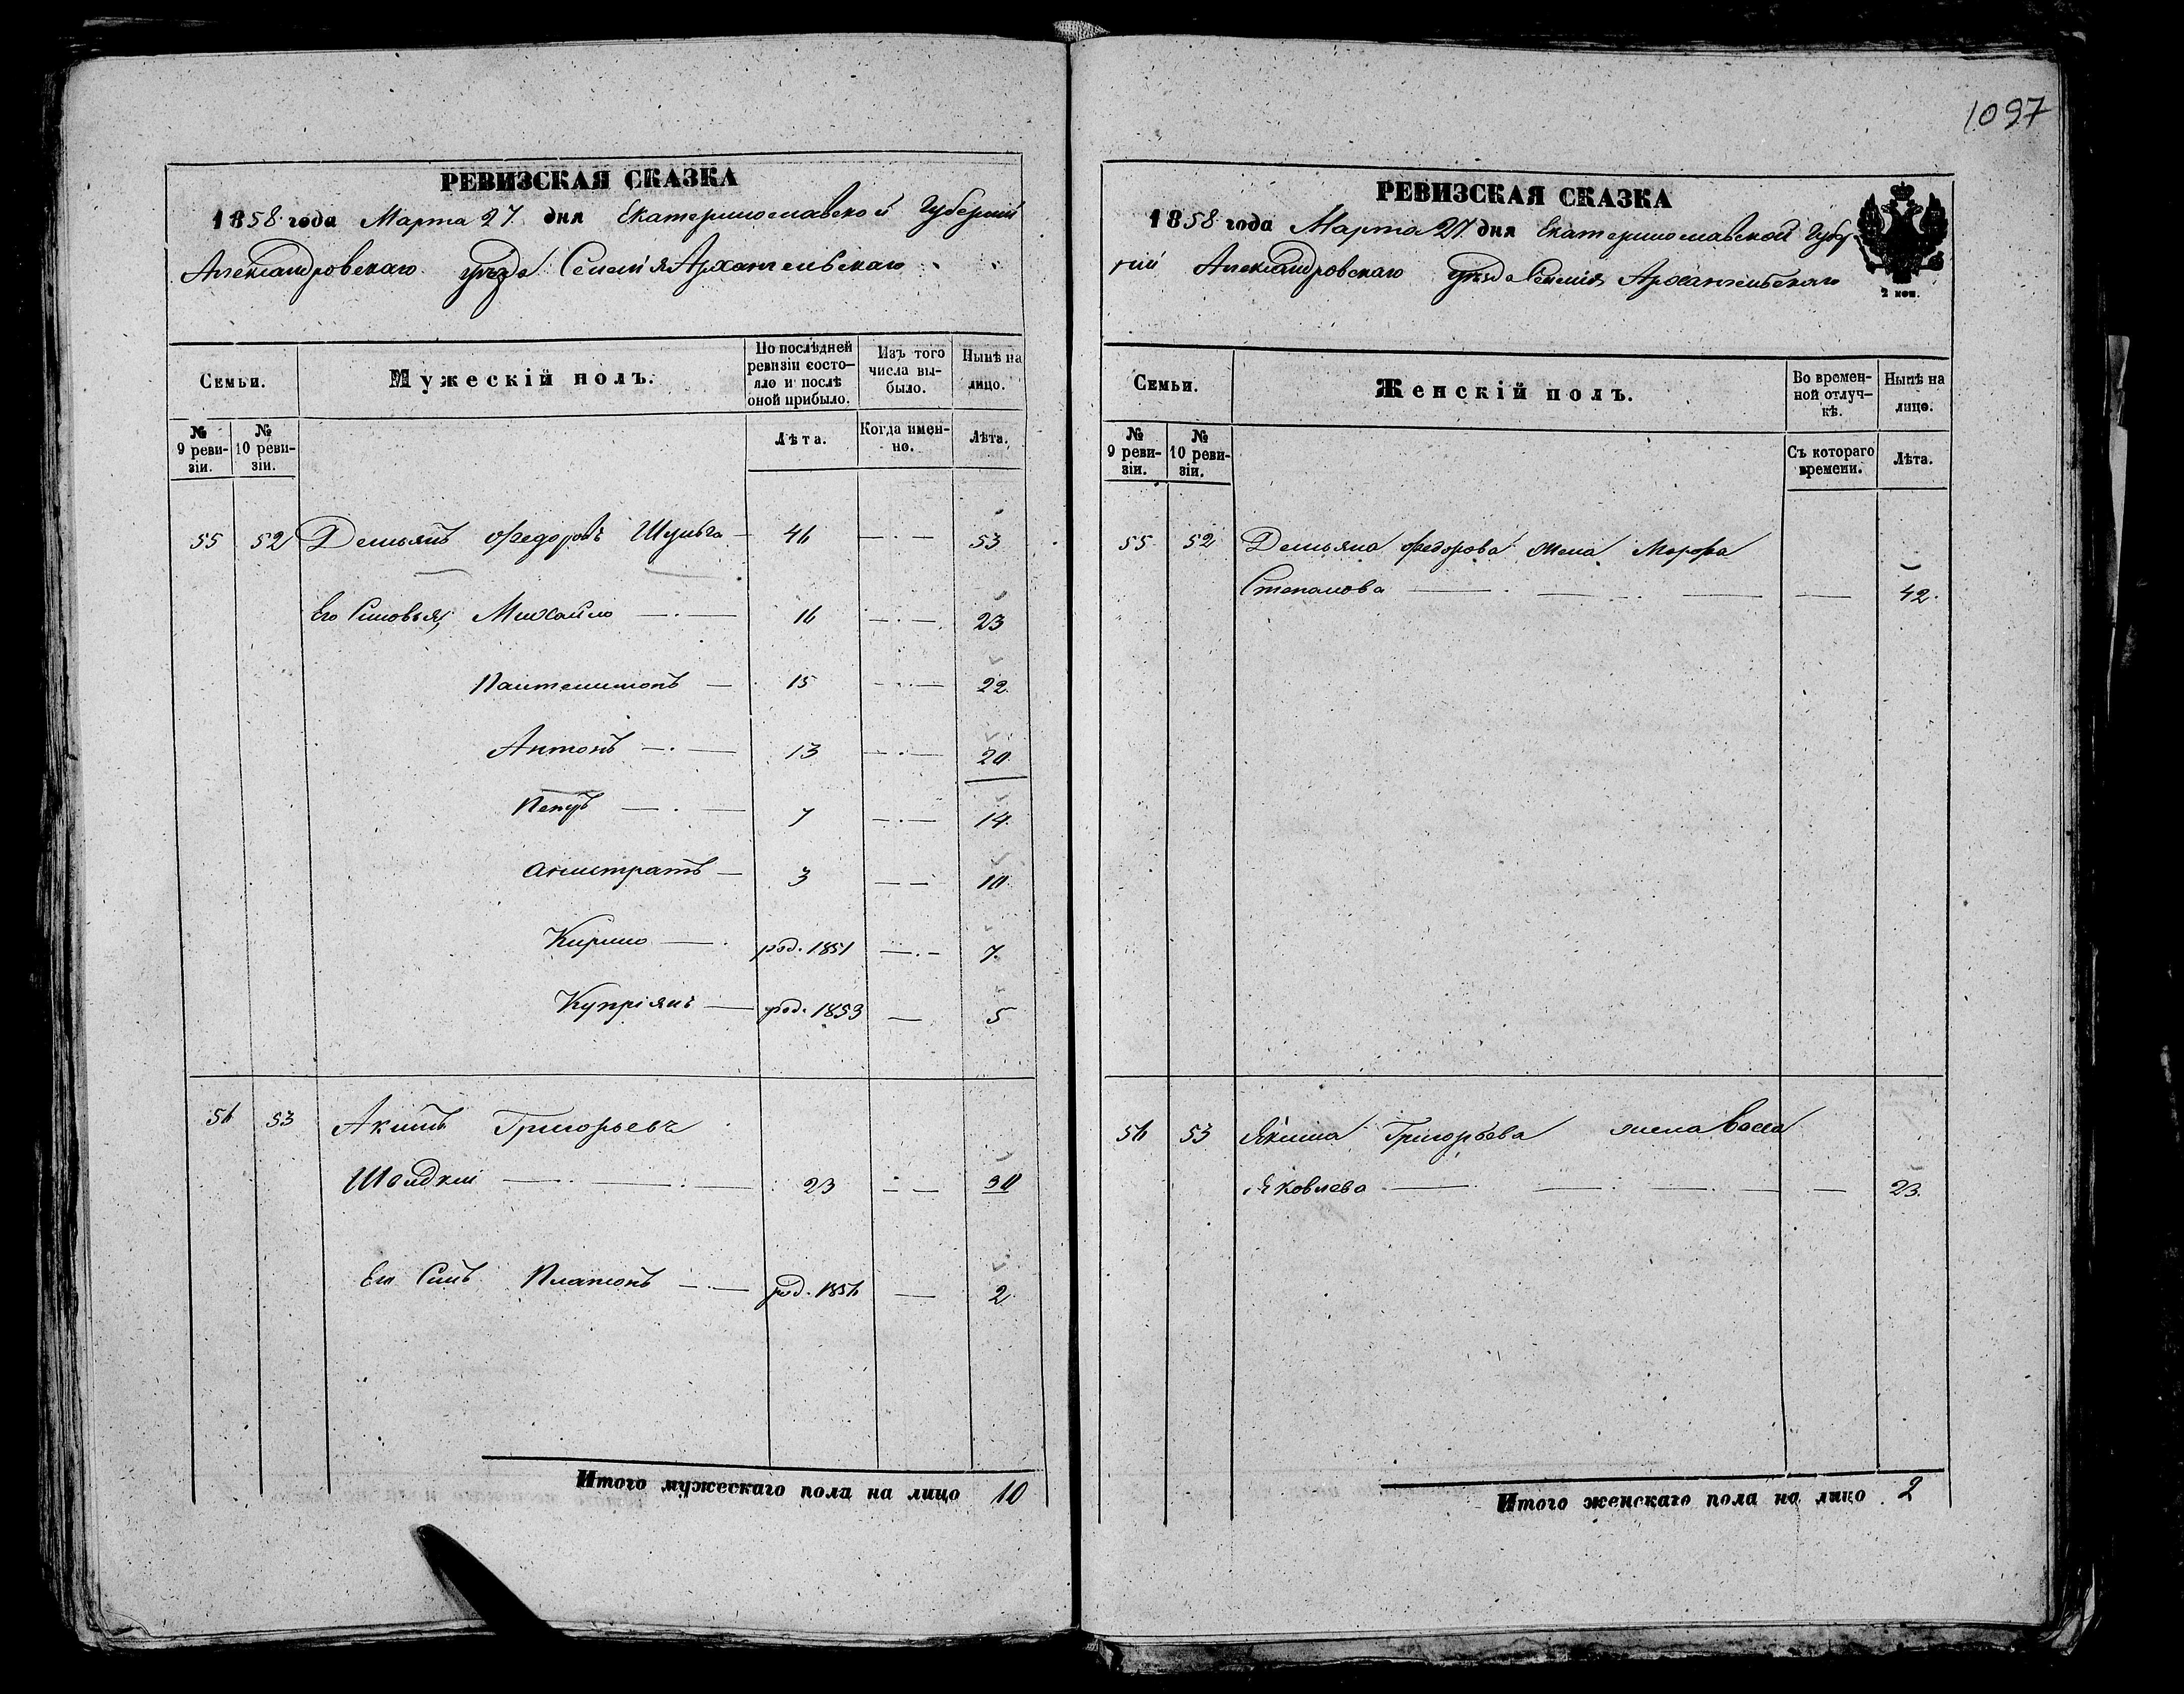 1097
РЕВИЗСКАЯ СКАЗКА
1858 года Марта 27 дня Екатеринославской Губернии
Александровскаго уезда Селенія Архангельскаго
Семьи.
Мужескій полъ.
По послѣдней ревизіи состо-
яло и послѣ
оной прибыло.
Изъ того
числа вы-
было.
Нынѣ на
лицо.
№
9 реви-
зіи.
№
10 реви-
зіи.
Лѣта.
Когда имен-
но.
Лѣта.
55 52 Демьянъ Федоровъ Шульга 46 53
Его Синовья, Михайло 16 23
Пантелимонъ 15 22
Антонъ 13 20
Петръ 7 14
Калистратъ 3 10
Кирило род. 1851 7
Купріянъ род. 1853 5
56 53 Акимъ Григорьевъ
23 30
Его Синъ Платонъ род. 1856 2
Итого мужескаго пола на лицо 10
РЕВИЗСКАЯ СКАЗКА
1858 года Марта 27 дня Екатеринославской Губер-
ніи Александровскаго уезда Селенія Архангельскаго
2 коп.
Семьи.
Женскій полъ.
Во времен-
ной отлуч-
кѣ.
Нынѣ на
лицо.
№
9 реви-
зіи.
№
10 реви-
зіи.
Съ котораго
времени.
Лѣта.
55 52 Демьяна Федорова жена Марфа
Степанова 42
56 53 Якима Григорьева жена Васса
Яковлева 23
Итого женскаго пола на лицо 2